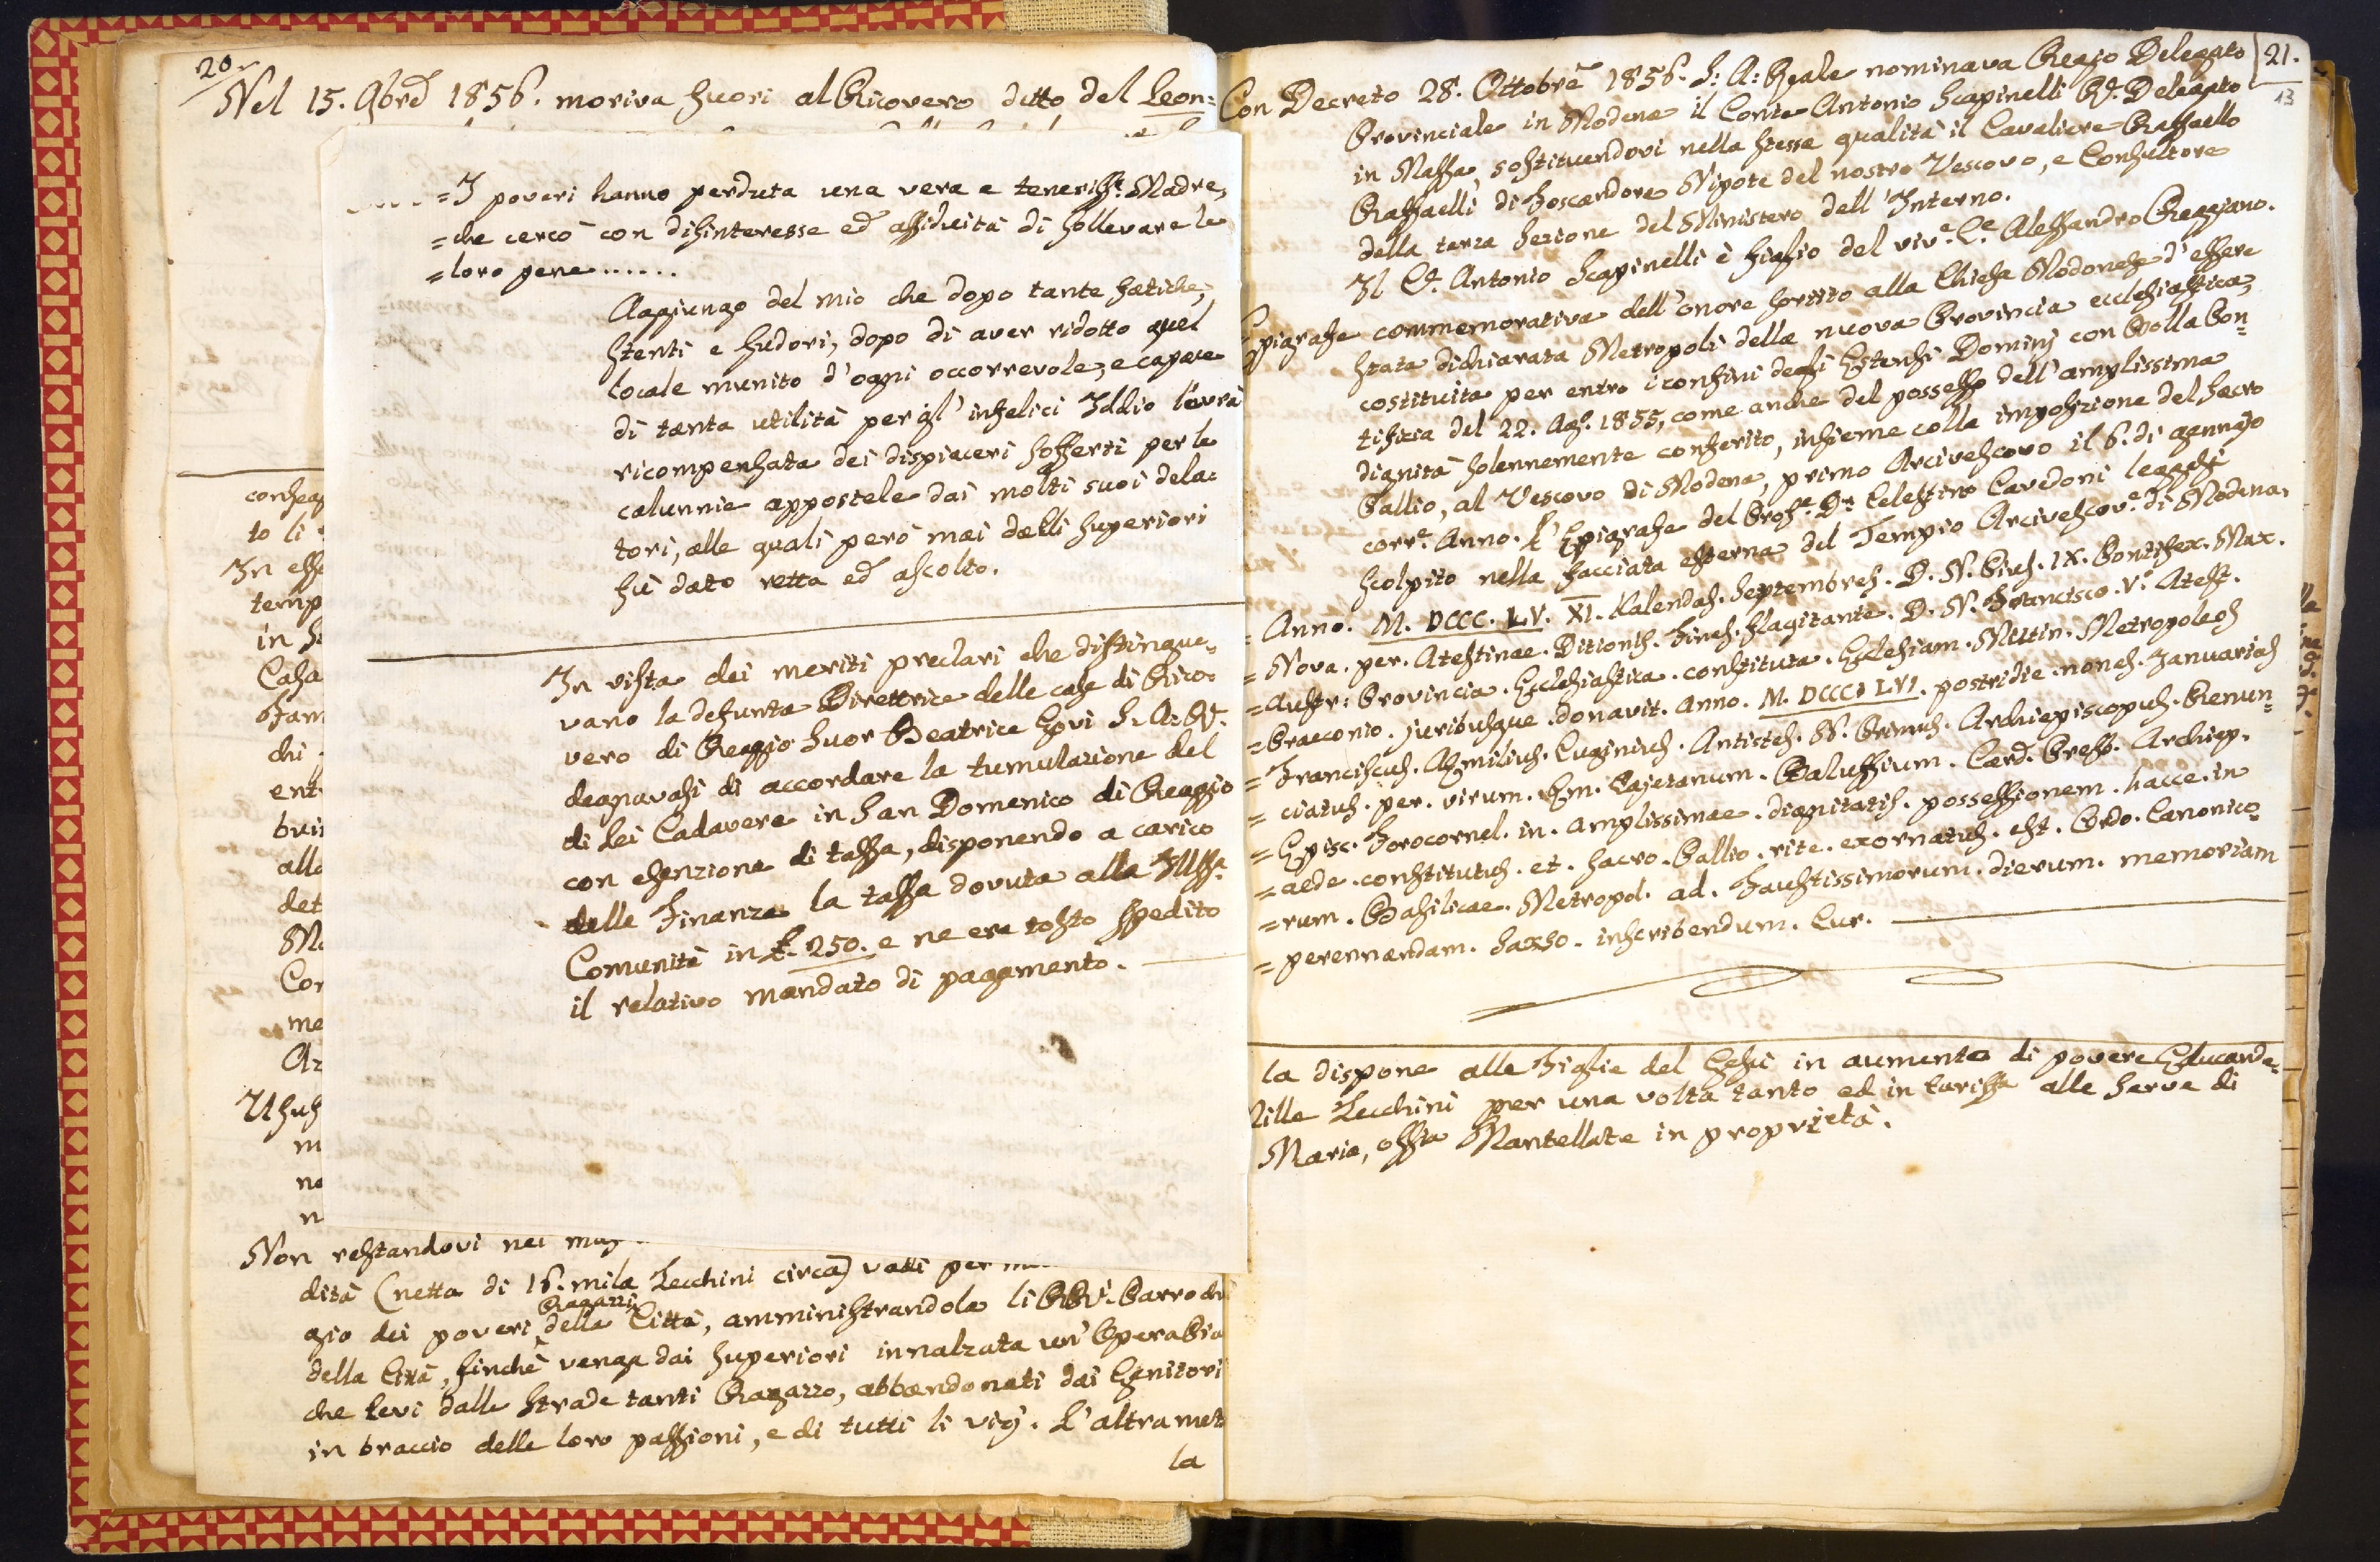 20.
Nel 15. 9bre 1856. moriva fuori al Ricovero ditto del Leon=
=I poveri hanno perduta una vera e teneriss.a Madre,
=che cercò con disinteresse ed assiduità di sollevare le
=loro pene......
Aggiungo del mio che dopo tante fatiche,
stenti e sudori, dopo di aver ridotto quel
locale munito d'ogni occorrevole, e capace
di tanta utilità per gl'infelici Iddio l'avrà
ricompensata dei dispiaceri sofferti per le
calunnie appostele dai molti suoi dela=
tori, alle quali però mai dalli superiori
fù dato retta ed ascolto.
In vista dei meriti preclari che distingue=
vano la defunta Direttrice delle case di Rico=
vero di Reggio Suor Beatrice Govi S. A. R.
degnavasi di accordare la tumulazione del
di Lei Cadavere in San Domenico di Reggio
con esenzione di tassa, disponendo a carico
delle Finanze la tassa dovuta alla Ill.ssa
Comunità in £. 250. e ne era tosto spedito
il relativo mandato di pagamento.
to li
In esse
temp
in
Casa
fam
chi
ent
alla
det
Cor
me
m
no
n
Non restandovi nei
dità (netta di 16. mila Zecchini circa) vatti per
gio dei poveri Ragazzi della Città, amministrandola li RR. Parrochi
della Città, finchè venga dai superiori innalzata un'Opera Pia
che levi dalle strade tanti Ragazzo, abbandonati dai Genitori
in braccio delle loro passioni, e di tutti li vizj. L'altra met
la
21.
13
Con Decreto 28. Ottobre 1856. S: A: Reale nominava Regio Delegato
Provinciale in Modena il Conte Antonio Scapinelli R. Delegato
in Massa, sostituendovi nella stessa qualità il Cavaliere Raffaello
Raffaelli di Foscandora Nipote del nostro Vescovo, e Consultore
della terza Sezione del Ministero dell'Interno.
Il C. Antonio Scapinelli è figlio del viv.e C.e Alessandro Reggiano.
Epigrafe commemorativa dell'onore sortito alla Chiesa Modonese d'essere
stata dichiarata Metropoli della nuova Provincia ecclesiastica,
costituita per entro i confini degli Estensi Dominj con Bolla Pon=
tifizia del 22. Ag. 1855, come anche del possesso dell'amplissima
dignità solennemente conferito, insieme colla imposizione del sacro
Pallio, al Vescovo di Modena, primo Arcivescovo il 6. di gennajo
corr.e Anno. L'Epigrafe del Prof.e D.n Celestino Cavedoni leggesi
scolpito nella facciata esterna del Tempio Arcivescov.e di Modena.
= Anno. M. DCCC. LV. XI. Kalendas. Septembres. D. N. Pius. IX. Pontifex. Max.
= Nova. per. Atestinae. Ditionis. Fines. flagitante. D. N. Francisco. V. Atest.
= Austr: Provincia. Ecclesiastica. constituta. Ecclesiam. Mutin. Metropoleos
= Praeconio. juribusque. donavit. Anno. M. DCCC. LVI. postridie. nonas. Januarias
= Franciscus. Aemilius. Cuginius. Antistes. N. Primus. Archiepiscopus. Renun=
= ciatus. per. virum. Em. Cajetanum. Baluffium. Card. Presb. Archiep.
= Episc. Forocornel. in. amplissimae. dignitatis. possessionem. hacce. in
= aede. constitutus. et. sacro. Pallio. rite. exornatus. est. Ordo. Canonico=
= rum. Basilicae. Metropol. ad. Faustissimorum. dierum. memoriam
= perennandam. saxso. inscribendum. Cur.
la dispone alle Figlie del Gesù in aumento di povere Educande,
Mille Zecchini per una volta tanto ed in tariffa alle Serve di
Maria, ossia Mantellate in proprietà.